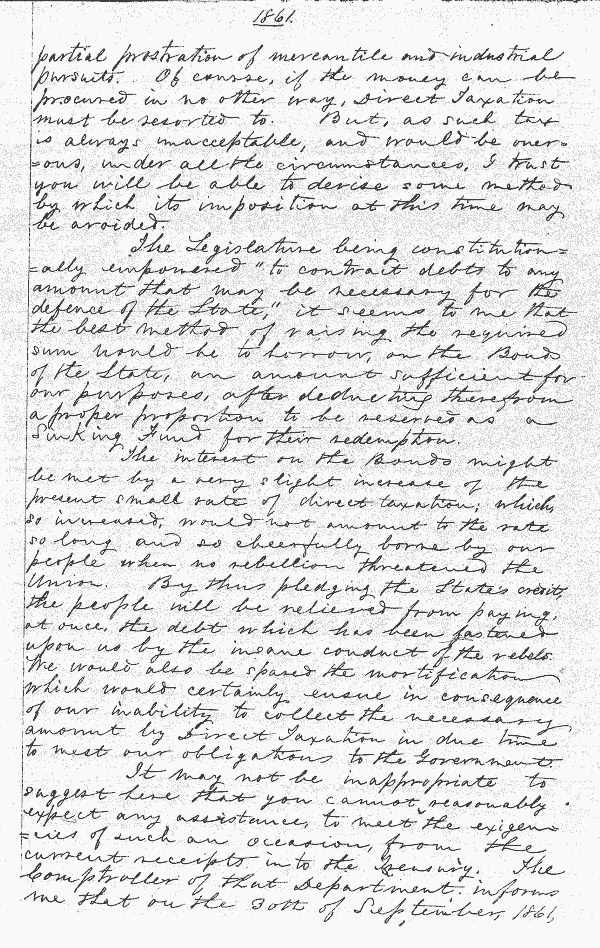 1861.
partial prostration of mercantile and industrial
pursuits. Of course, if the money can be
procured in no other way, Direct Taxation
must be resorted to. But, as such tax
is always unacceptable, and would be oner=
=ous, under all the circumstances, I trust
you will be able to devise some method
by which its imposition at this time may
be avoided.
The Legislature being constitution=
=ally empowered "to contract debts to any
amount that may be necessary for the
defence of the State," it seems to me that
the best method of raising the required
sum would be to borrow, on the Bonds
of the State, an amount sufficient for
our purposes, after deducting therefrom
a proper proportion to be reserved as a
Sinking Fund for their redemption.
The interest on the Bonds might
be met by a very slight increase of the
present small rate of direct taxation; which,
so increased, would not amount to the rate
so long and so cheerfully borne by our
people when no rebellion threatened the
Union. By thus pledging the State's credit,
the people will be relieved from paying,
at once, the debt which has been fastened
upon us by the insane conduct of the rebels.
We would also be spared the mortification
which would certainly ensue in consequence
of our inability to collect the necessary
amount by Direct Taxation in due time
to meet our obligations to the Government.
It may not be inappropriate to
suggest here that you cannot reasonably
expect any assistance, to meet the exigen=
=cies of such an occasion, from the
current receipts into the Treasury. The
Comptroller of that Department informs
me that on the 30th of September, 1861,